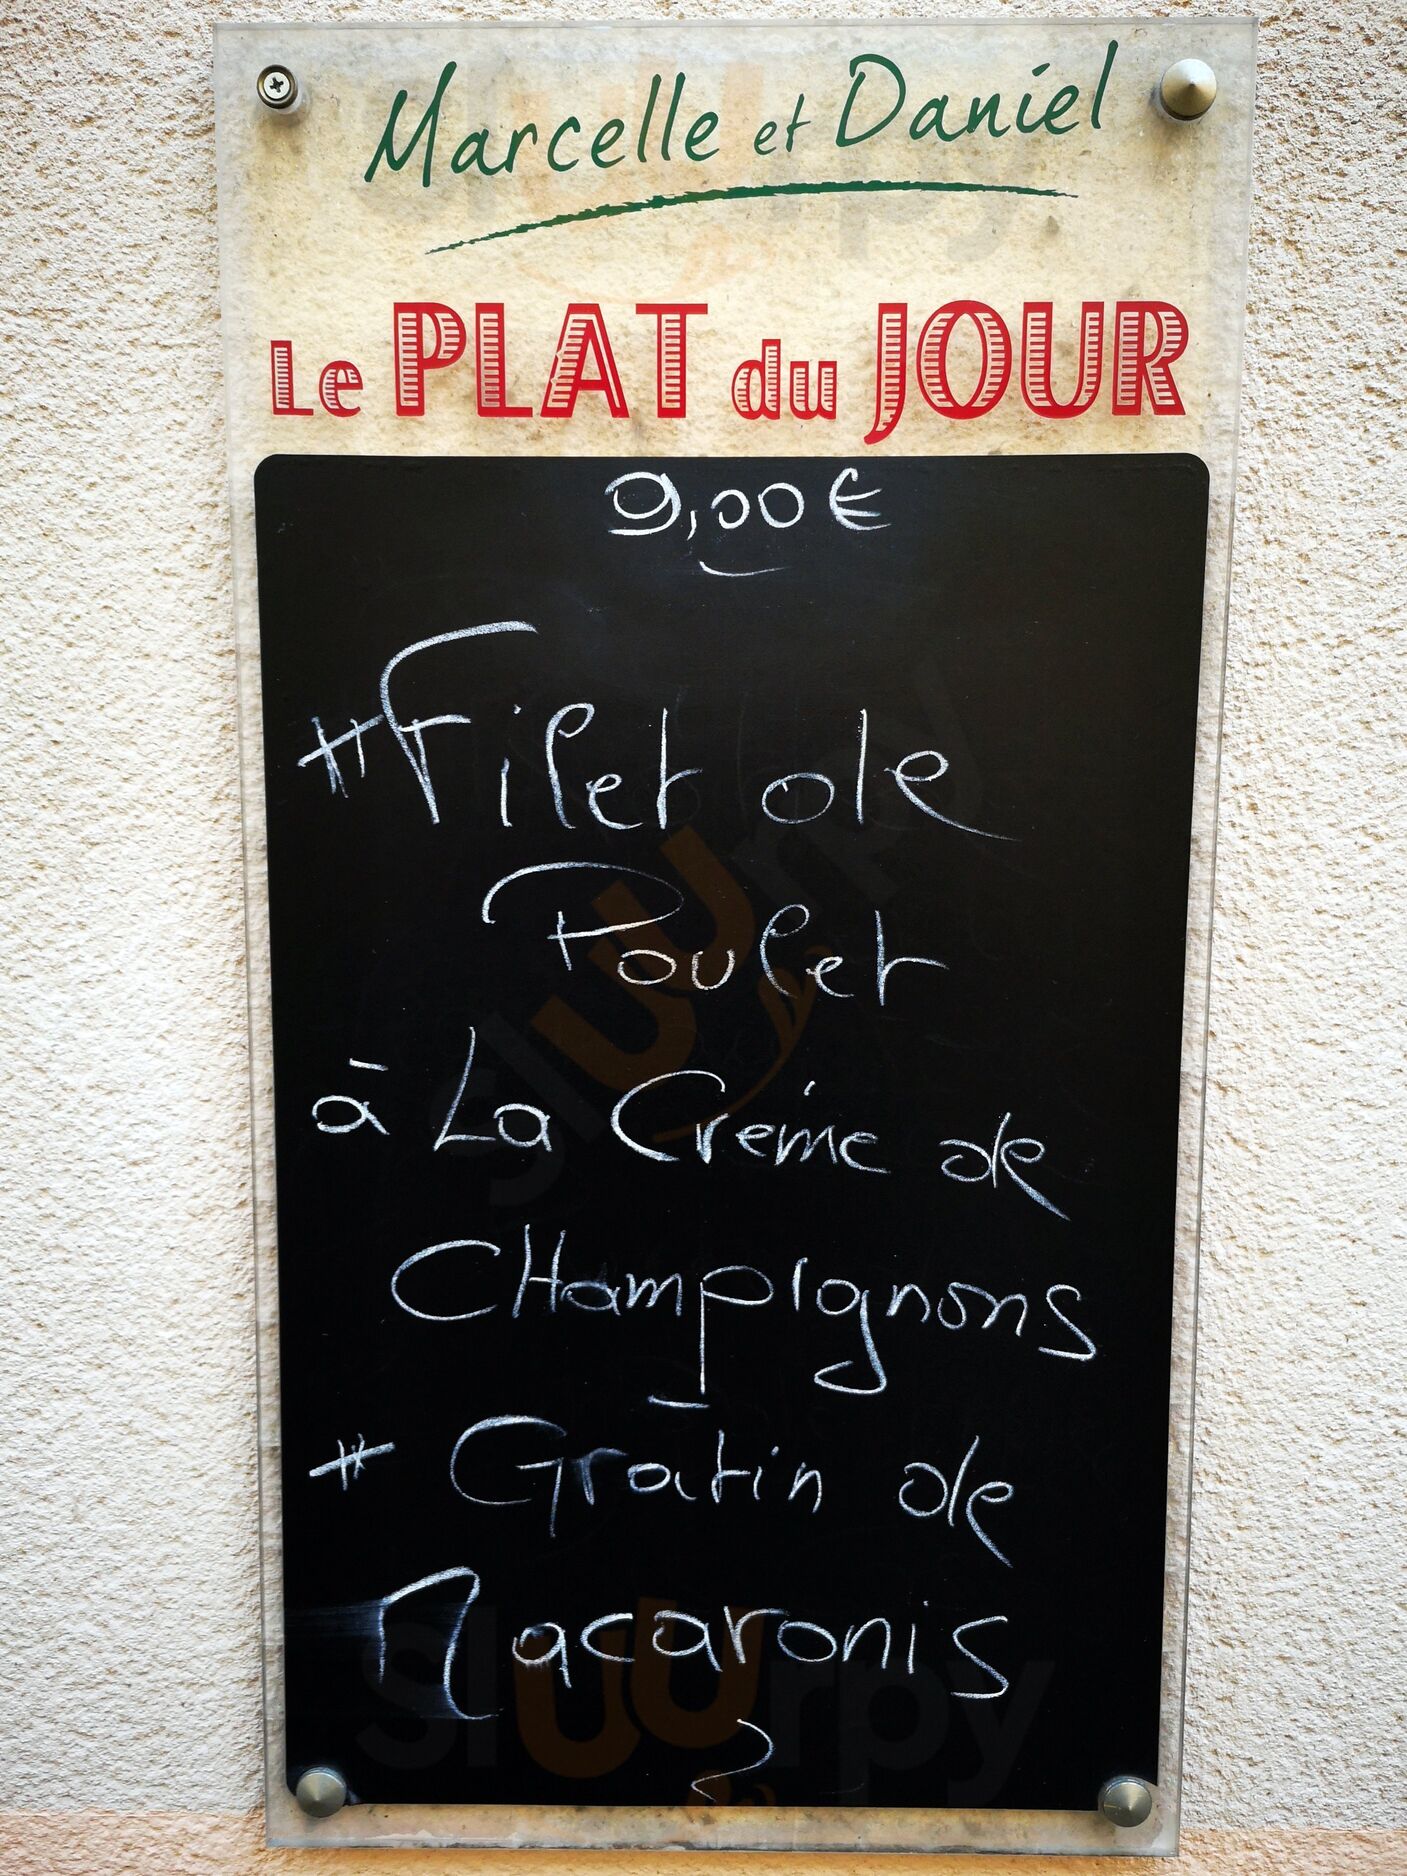 Marcelle et Daniel
Le PLAT du JOUR
9,00€
# Filet de
Poulet
à La Crème de
CHampignons
# Gratin de
Macaronis
slurpy
slurpy
slurpy